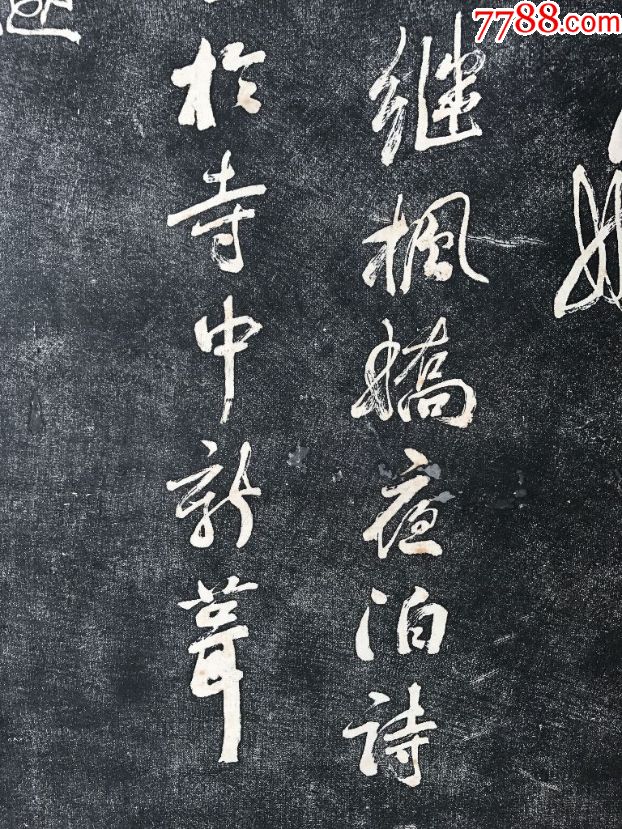 7788.com
继楓橋夜泊詩
於寺中新葺